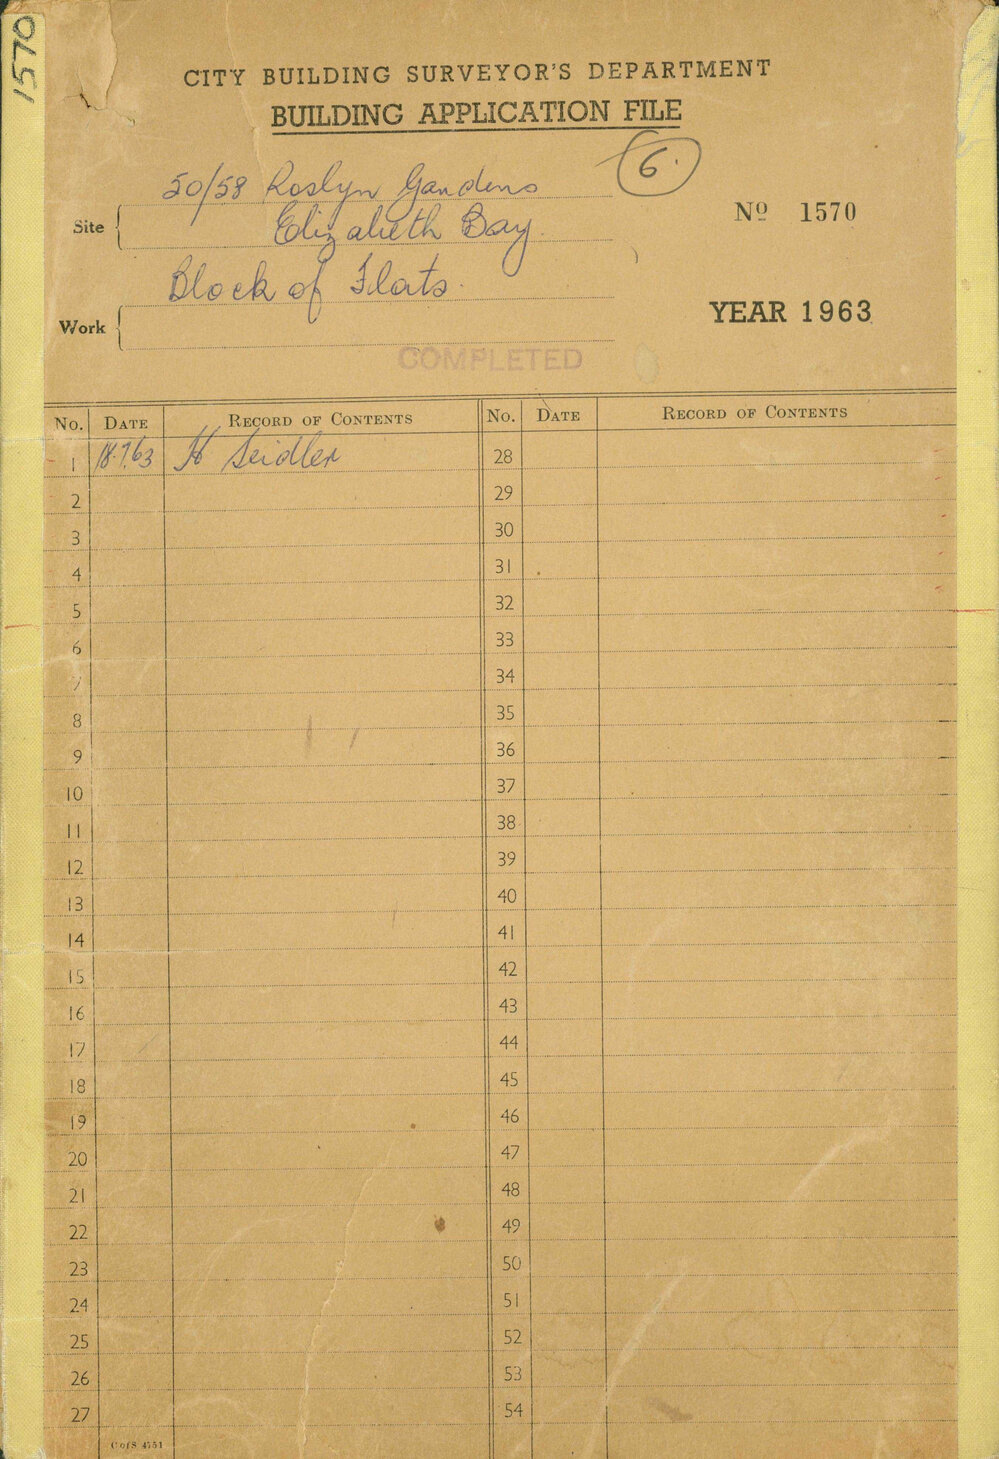 1570
CITY BUILDING SURVEYOR'S DEPARTMENT
BUILDING APPLICATION FILE
6.
50/58 Roslyn Gardens
Site
Elizabeth Bay.
Nº 1570
Block of Flats.
Work
YEAR 1963
COMPLETED
No. DATE RECORD OF CONTENTS No. DATE RECORD OF CONTENTS
1 18.7.63 H Seidler 28
2 29
3 30
4 31
5 32
6 33
7 34
8 35
9 36
10 37
11 38
12 39
13 40
14 41
15 42
16 43
17 44
18 45
19 46
20 47
21 48
22 49
23 50
24 51
25 52
26 53
27 54
C of S 4751